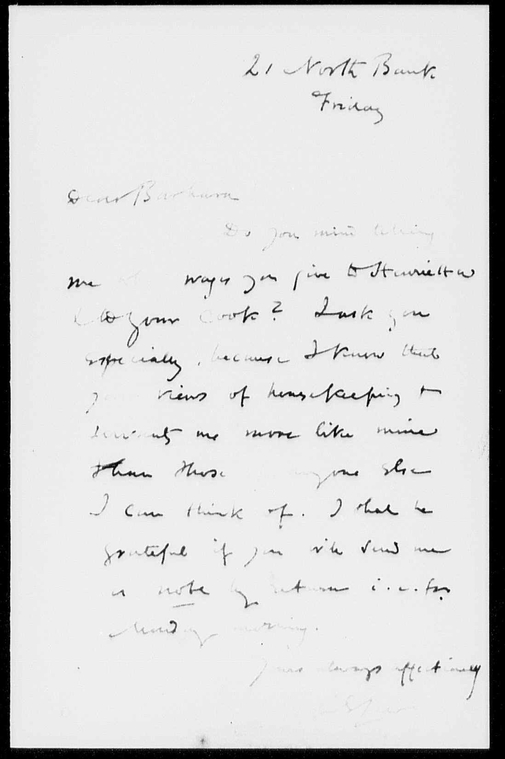 21 North Bank
Friday
Dear Barbara
Do you mind telling
me wages you give to Henrietta
& to your Cook? I ask you
especially, because I know that
your views of housekeeping &
servants are more like mine
than those anyone else
I can think of. I shall be
grateful if you will send me
a note by return i.e. for
Monday morning.
Yours always affectionately